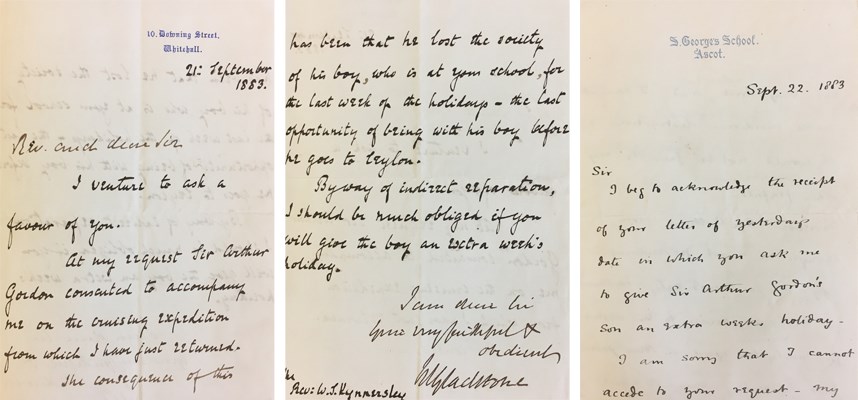 10. Downing Street,
Whitehall.
21st September
1883.
Rev. and dear Sir
I venture to ask a
favour of you.
At my request Sir Arthur
Gordon consented to accompany
me on the cruising expedition
from which I have just returned.
The consequence of this
has been that he lost the society
of his boy, who is at your school, for
the last week of the holidays - the last
opportunity of being with his boy before
he goes to Ceylon.
By way of indirect reparation,
I should be much obliged if you
will give the boy an extra week's
holiday.
I am dear Sir
Your very faithful &
obedient
WEGladstone
The
Rev: W. S. Kynnersley
S. George's School.
Ascot.
Sept. 22. 1883
Sir
I beg to acknowledge the receipt
of your letter of yesterday's
date in which you ask me
to give Sir Arthur Gordon's
son an extra weeks holiday -
I am sorry that I cannot
accede to your request - My